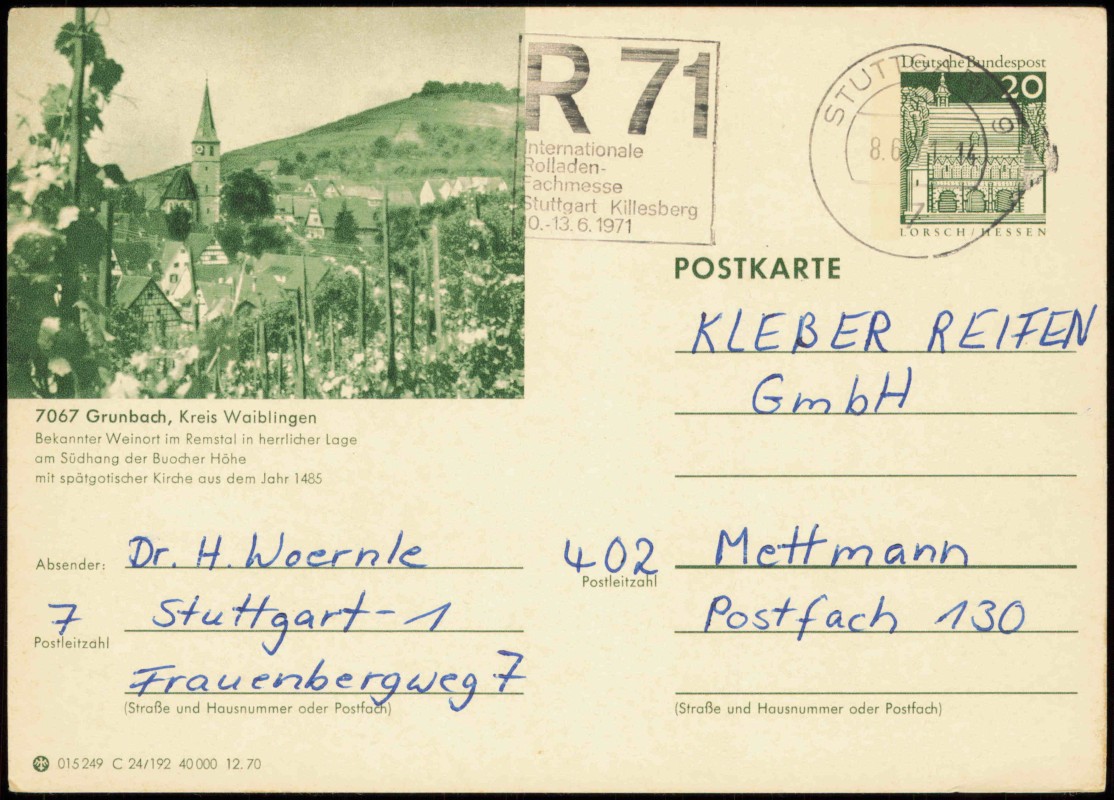 R 71
Internationale
Rolladen-
Fachmesse
Stuttgart Killesberg
10.-13.6.1971
STUTTGART
8.6. 14
Deutsche Bundespost
20
LORSCH/HESSEN
POSTKARTE
KLEBER REIFEN
GmbH
7067 Grunbach, Kreis Waiblingen
Bekannter Weinort im Remstal in herrlicher Lage
am Südhang der Buocher Höhe
mit spätgotischer Kirche aus dem Jahr 1485
Absender: Dr. H. Woernle
7 Stuttgart-1
Postleitzahl
Frauenbergweg 7
(Straße und Hausnummer oder Postfach)
402 Mettmann
Postleitzahl
Postfach 130
(Straße und Hausnummer oder Postfach)
015249 C 24/192 40000 12.70